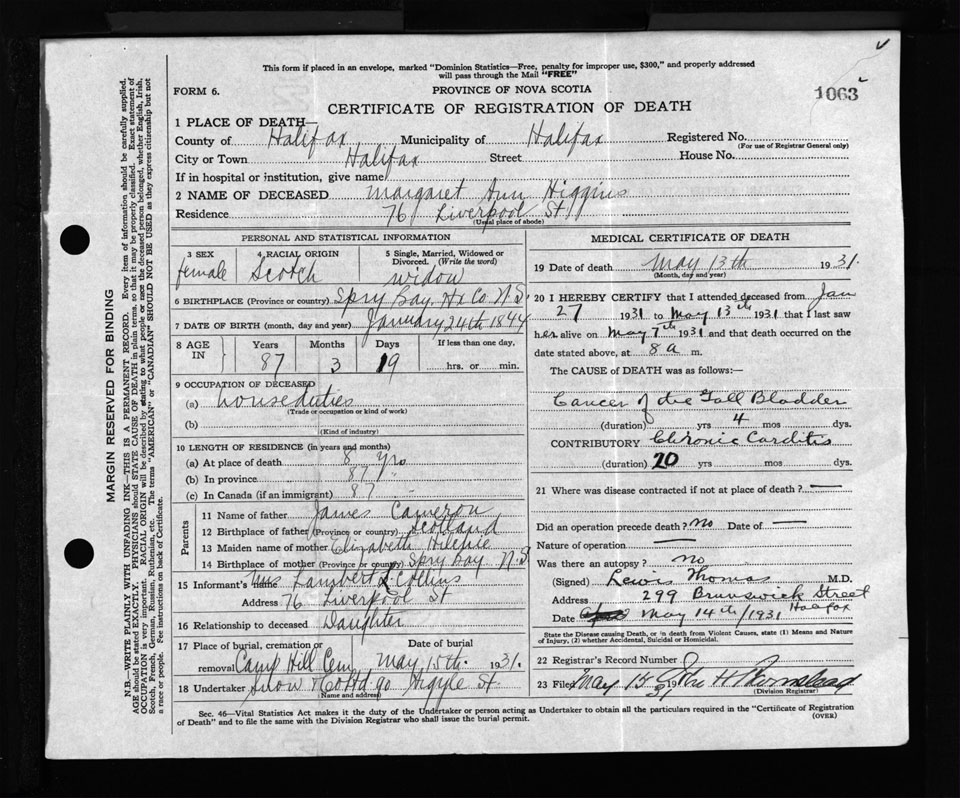 This form if placed in an envelope, marked "Dominion Statistics—Free, penalty for improper use, $300," and properly addressed
will pass through the Mail "FREE"
FORM 6.
PROVINCE OF NOVA SCOTIA
1063
CERTIFICATE OF REGISTRATION OF DEATH
1 PLACE OF DEATH—
County of Halifax Municipality of Halifax Registered No.
(For use of Registrar General only)
City or Town Halifax Street House No.
If in hospital or institution, give name
2 NAME OF DECEASED Margaret Ann Higgins
Residence 76 Liverpool St
(Usual place of abode)
PERSONAL AND STATISTICAL INFORMATION
3 SEX 4 RACIAL ORIGIN 5 Single, Married, Widowed or
Divorced. (Write the word)
female Scotch widow
6 BIRTHPLACE (Province or country) Spry Bay, Hx Co. N.S.
7 DATE OF BIRTH (month, day and year) January 24th 1844
8 AGE IN Years Months Days If less than one day,
87 3 19 hrs. or min.
9 OCCUPATION OF DECEASED
(a) houseduties
(Trade or occupation or kind of work)
(b)
(Kind of industry)
10 LENGTH OF RESIDENCE (in years and months)
(a) At place of death 8 yrs
(b) In province 87
(c) In Canada (if an immigrant) 87
Parents
11 Name of father James Cameron
12 Birthplace of father (Province or country) Scotland
13 Maiden name of mother Elizabeth
14 Birthplace of mother (Province or country) Spry Bay N.S
15 Informant's name Mrs Lambert L Collins
Address 76 Liverpool St
16 Relationship to deceased Daughter
17 Place of burial, cremation or Date of burial
removal Camp Hill Cem May 15th 1931.
18 Undertaker Snow & Co Ltd 90 Argyle St.
(Name and address)
MEDICAL CERTIFICATE OF DEATH
19 Date of death May 13th 1931.
(Month, day and year)
20 I HEREBY CERTIFY that I attended deceased from Jan
27 1931 to May 13th 1931 that I last saw
her alive on May 7th 1931 and that death occurred on the
date stated above, at 8 a m.
The CAUSE of DEATH was as follows:—
Cancer of the Gall Bladder
(duration) yrs 4 mos dys.
CONTRIBUTORY Chronic Carditis
(duration) 20 yrs mos dys.
21 Where was disease contracted if not at place of death? —
Did an operation precede death? no Date of —
Nature of operation —
Was there an autopsy? no
(Signed) Lewis Thomas M.D.
Address 299 Brunswick Street
Halifax
Date May 14th/1931
State the Disease causing Death, or in death from Violent Causes, state (1) Means and Nature
of Injury, (2) whether Accidental, Suicidal or Homicidal.
22 Registrar's Record Number
23 Filed May 15 19
(Division Registrar)
Sec. 46—Vital Statistics Act makes it the duty of the Undertaker or person acting as Undertaker to obtain all the particulars required in the "Certificate of Registration
of Death" and to file the same with the Division Registrar who shall issue the burial permit.
(OVER)
MARGIN RESERVED FOR BINDING
N.B.—WRITE PLAINLY WITH UNFADING INK—THIS IS A PERMANENT RECORD. Every item of information should be carefully supplied.
AGE should be stated EXACTLY. PHYSICIANS should STATE CAUSE OF DEATH in plain terms, so that it may be properly classified. Exact statement of
OCCUPATION is very important. RACIAL ORIGIN will be described by stating to what people or race the deceased person belonged, whether English, Irish,
Scotch, French, German, Russian, Ruthenian, etc. The terms "AMERICAN" or "CANADIAN" SHOULD NOT BE USED as they express citizenship but not
a race or people. See instructions on back of Certificate.